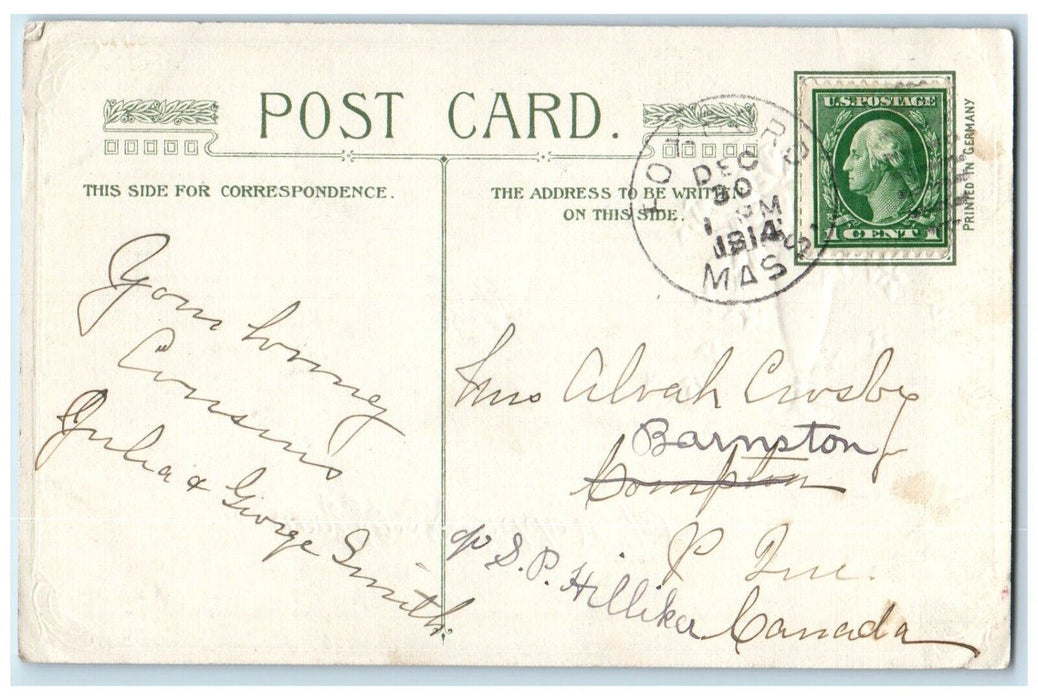 POST CARD.
THIS SIDE FOR CORRESPONDENCE.
THE ADDRESS TO BE WRITTEN
ON THIS SIDE.
DEC
30
1914
MASS
U.S.POSTAGE
1 CENT 1
PRINTED IN GERMANY
Your loving
Cousins
Julia & George Smith
Mrs Alvah Crosby
Barnston
Compton
P. Que.
c/o S.P. Hilliker
Canada